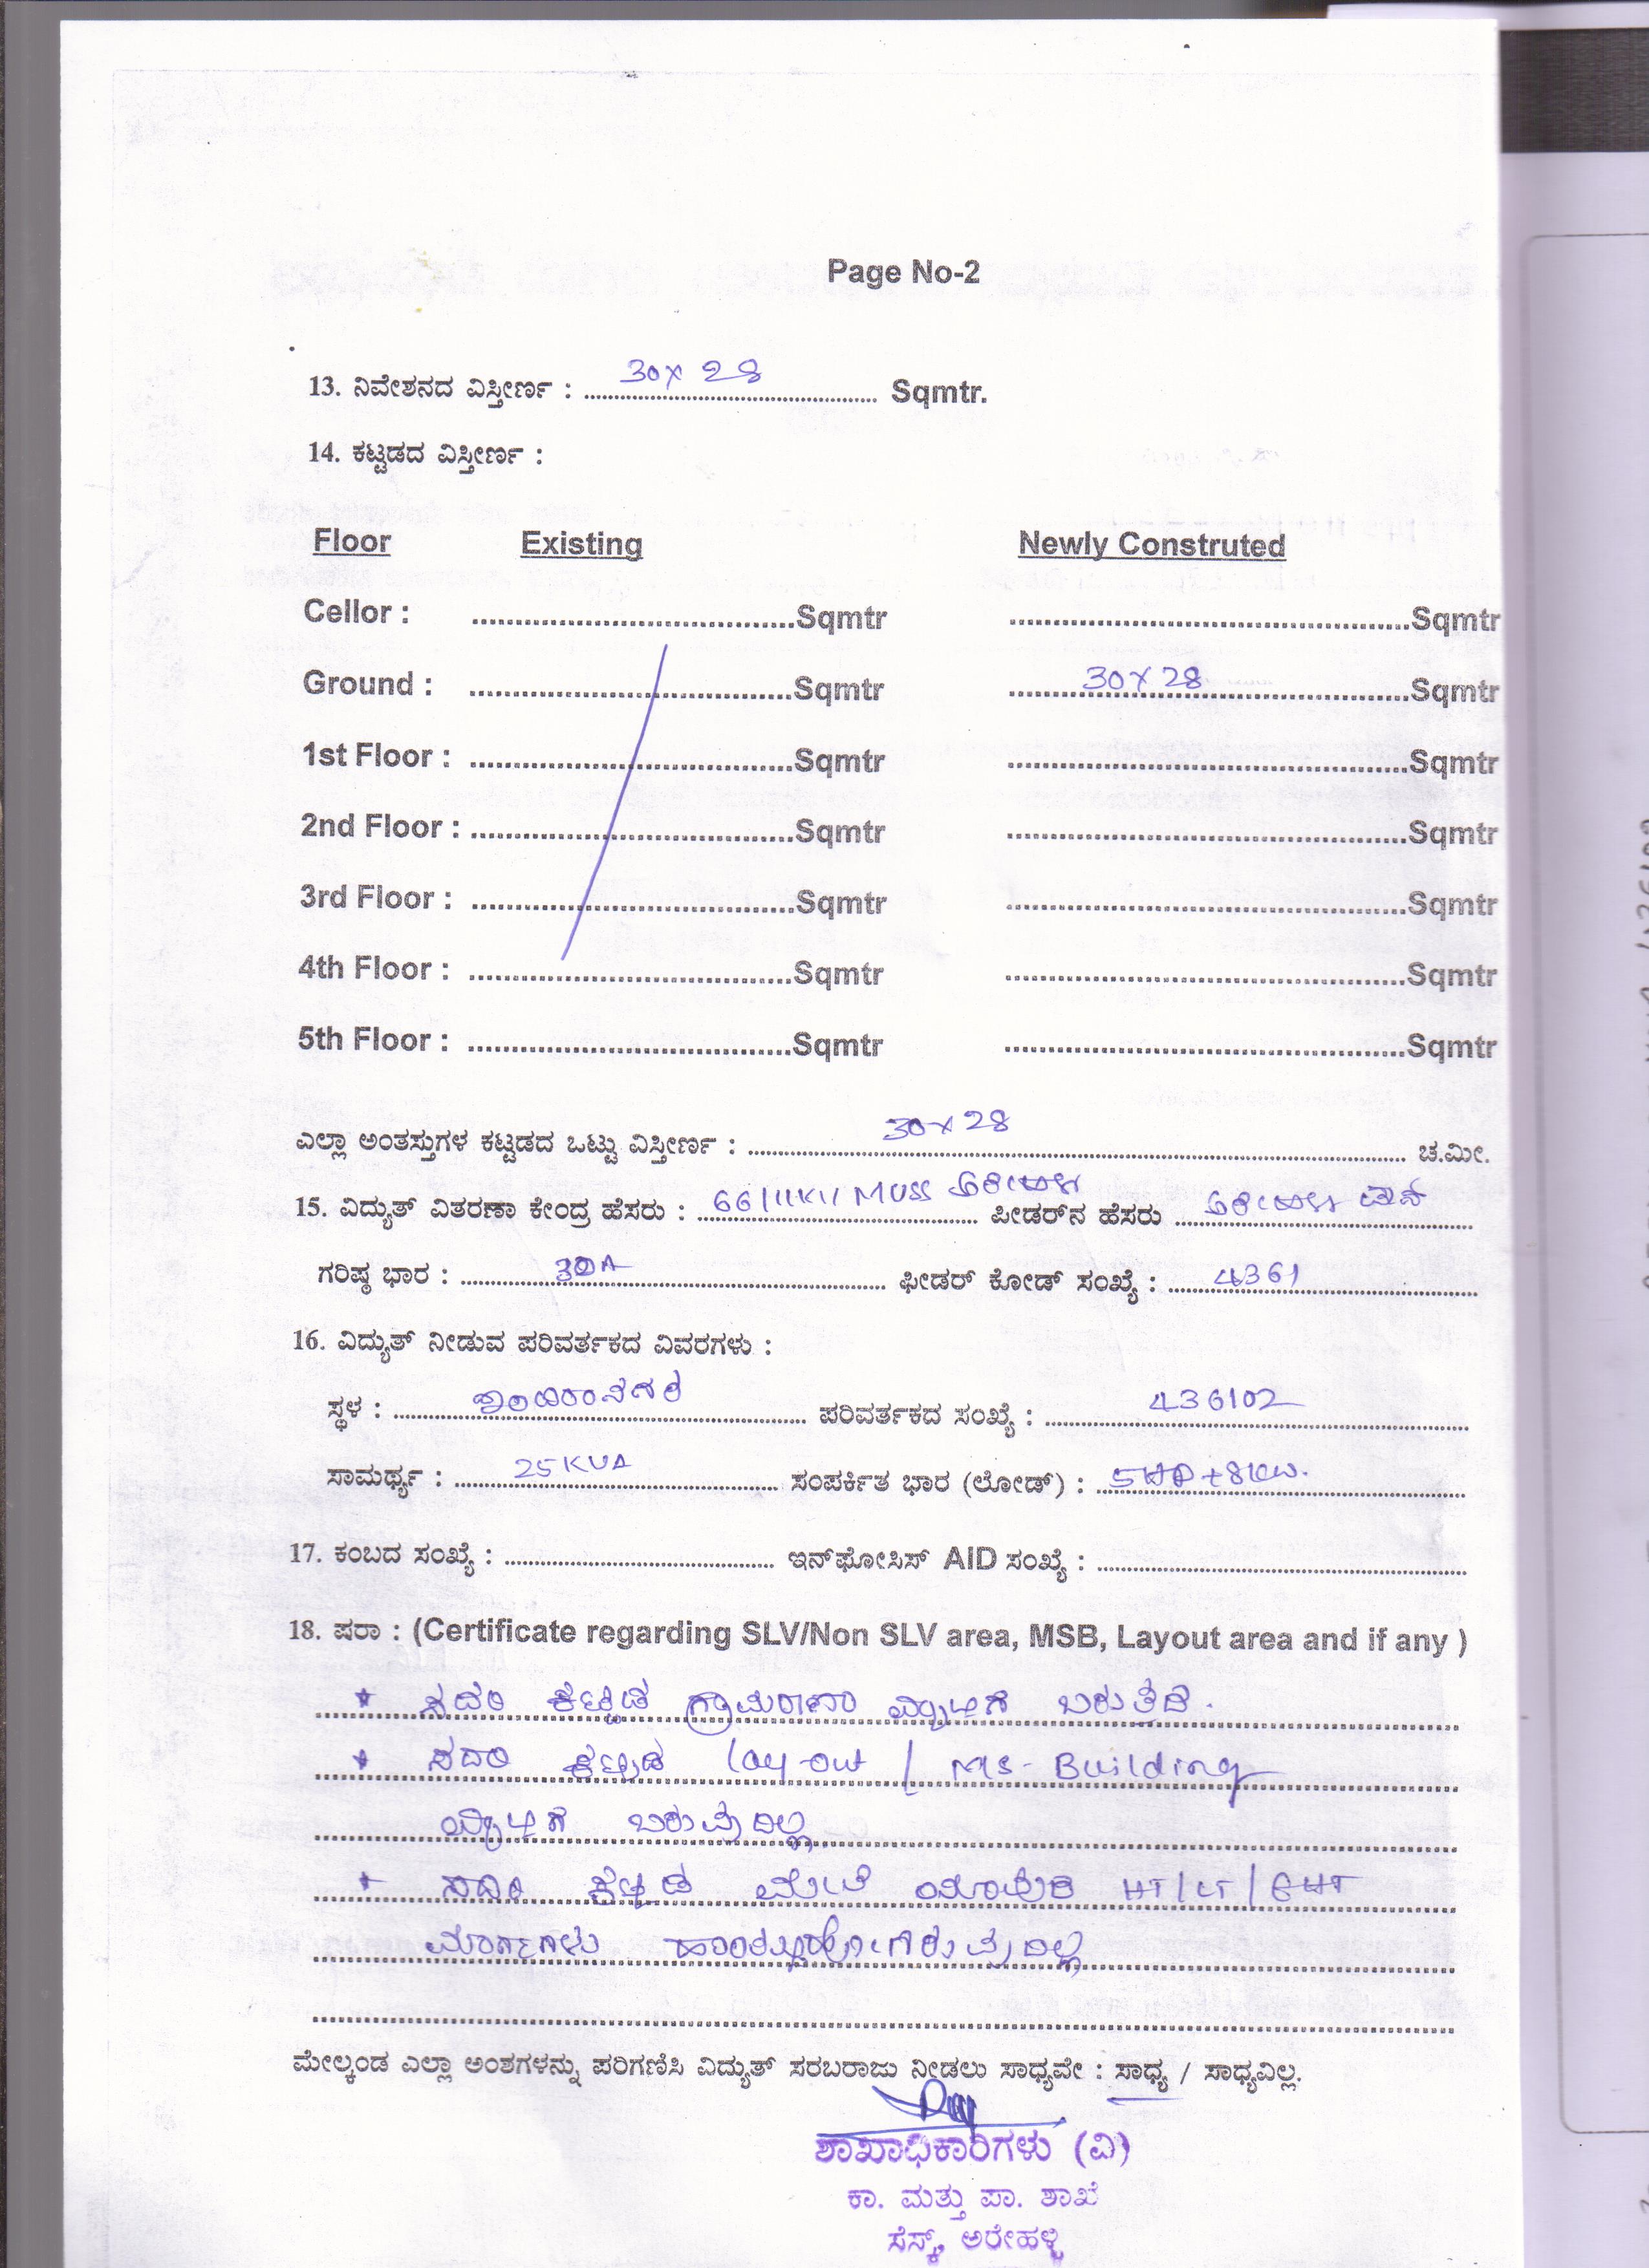 Page No-2
13. ನಿವೇಶನದ ವಿಸ್ತೀರ್ಣ : 30 x 28 Sqmtr.
14. ಕಟ್ಟಡದ ವಿಸ್ತೀರ್ಣ :
Floor Existing Newly Construted
Cellor : Sqmtr Sqmtr
Ground : Sqmtr 30 x 28 Sqmtr
1st Floor : Sqmtr Sqmtr
2nd Floor : Sqmtr Sqmtr
3rd Floor : Sqmtr Sqmtr
4th Floor : Sqmtr Sqmtr
5th Floor : Sqmtr Sqmtr
ಎಲ್ಲಾ ಅಂತಸ್ತುಗಳ ಕಟ್ಟಡದ ಒಟ್ಟು ವಿಸ್ತೀರ್ಣ : 30 x 28 ಚ.ಮೀ.
15. ವಿದ್ಯುತ್ ವಿತರಣಾ ಕೇಂದ್ರ ಹೆಸರು : 66/11KV MUSS ಪೀಡರ್‌ನ ಹೆಸರು
ಗರಿಷ್ಠ ಭಾರ : 30A ಫೀಡರ್ ಕೋಡ್ ಸಂಖ್ಯೆ : 4361
16. ವಿದ್ಯುತ್ ನೀಡುವ ಪರಿವರ್ತಕದ ವಿವರಗಳು :
ಸ್ಥಳ : ಪರಿವರ್ತಕದ ಸಂಖ್ಯೆ : 436102
ಸಾಮರ್ಥ್ಯ : 25 KVA ಸಂಪರ್ಕಿತ ಭಾರ (ಲೋಡ್) : 5HP + 8KW.
17. ಕಂಬದ ಸಂಖ್ಯೆ : ಇನ್‌ಫೋಸಿಸ್ AID ಸಂಖ್ಯೆ :
18. ಷರಾ : (Certificate regarding SLV/Non SLV area, MSB, Layout area and if any )
* ಸದರಿ ಕಟ್ಟಡ ಗ್ರಾಮಠಾಣಾ ವ್ಯಾಪ್ತಿಗೆ ಬರುತ್ತದೆ.
* ಸದರಿ ಕಟ್ಟಡ layout / MS-Building
ವ್ಯಾಪ್ತಿಗೆ ಬರುವುದಿಲ್ಲ
* ಸದರಿ ಕಟ್ಟಡ ಮೇಲೆ ಯಾವುದೇ HT/LT/EHT
ಮಾರ್ಗಗಳು ಹಾದುಹೋಗಿರುವುದಿಲ್ಲ
ಮೇಲ್ಕಂಡ ಎಲ್ಲಾ ಅಂಶಗಳನ್ನು ಪರಿಗಣಿಸಿ ವಿದ್ಯುತ್ ಸರಬರಾಜು ನೀಡಲು ಸಾಧ್ಯವೇ : ಸಾಧ್ಯ / ಸಾಧ್ಯವಿಲ್ಲ.
ಶಾಖಾಧಿಕಾರಿಗಳು (ವಿ)
ಕಾ. ಮತ್ತು ಪಾ. ಶಾಖೆ
ಸೆಸ್ಕ್, ಅರೇಹಳ್ಳಿ